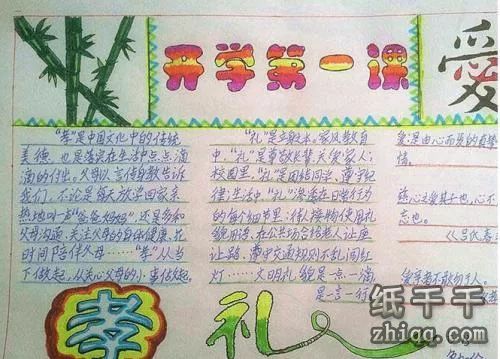 开学第一课
爱
"孝"是中国文化中的传统
美德,也是落实在生活中点点滴
滴的付出。父母以言传身教告诉
我们,不论是每天放学回家亲
热地叫一声"爸爸妈妈",还是多和
父母沟通,关注父母的身体健康,花
时间陪伴父母……"孝"从当
下做起,从关心父母的小事做起。
孝
"礼"是立敬本。家风教育
中,"礼"是尊敬长辈,关爱家人;
校园里,"礼"是团结同学,遵守纪
律;生活中,"礼"渗透在日常行为
的每个细节里:待人接物使用礼
貌用语、在公共场合给老人让座
让路、遵守交通规则不乱闯红
灯……文明礼貌是一点一滴
是一言一行
礼
爱是由心而发的真挚
情。
忘也。
《吕氏春
爱亲者不敢恶于人。
纸干干
zhiqq.com